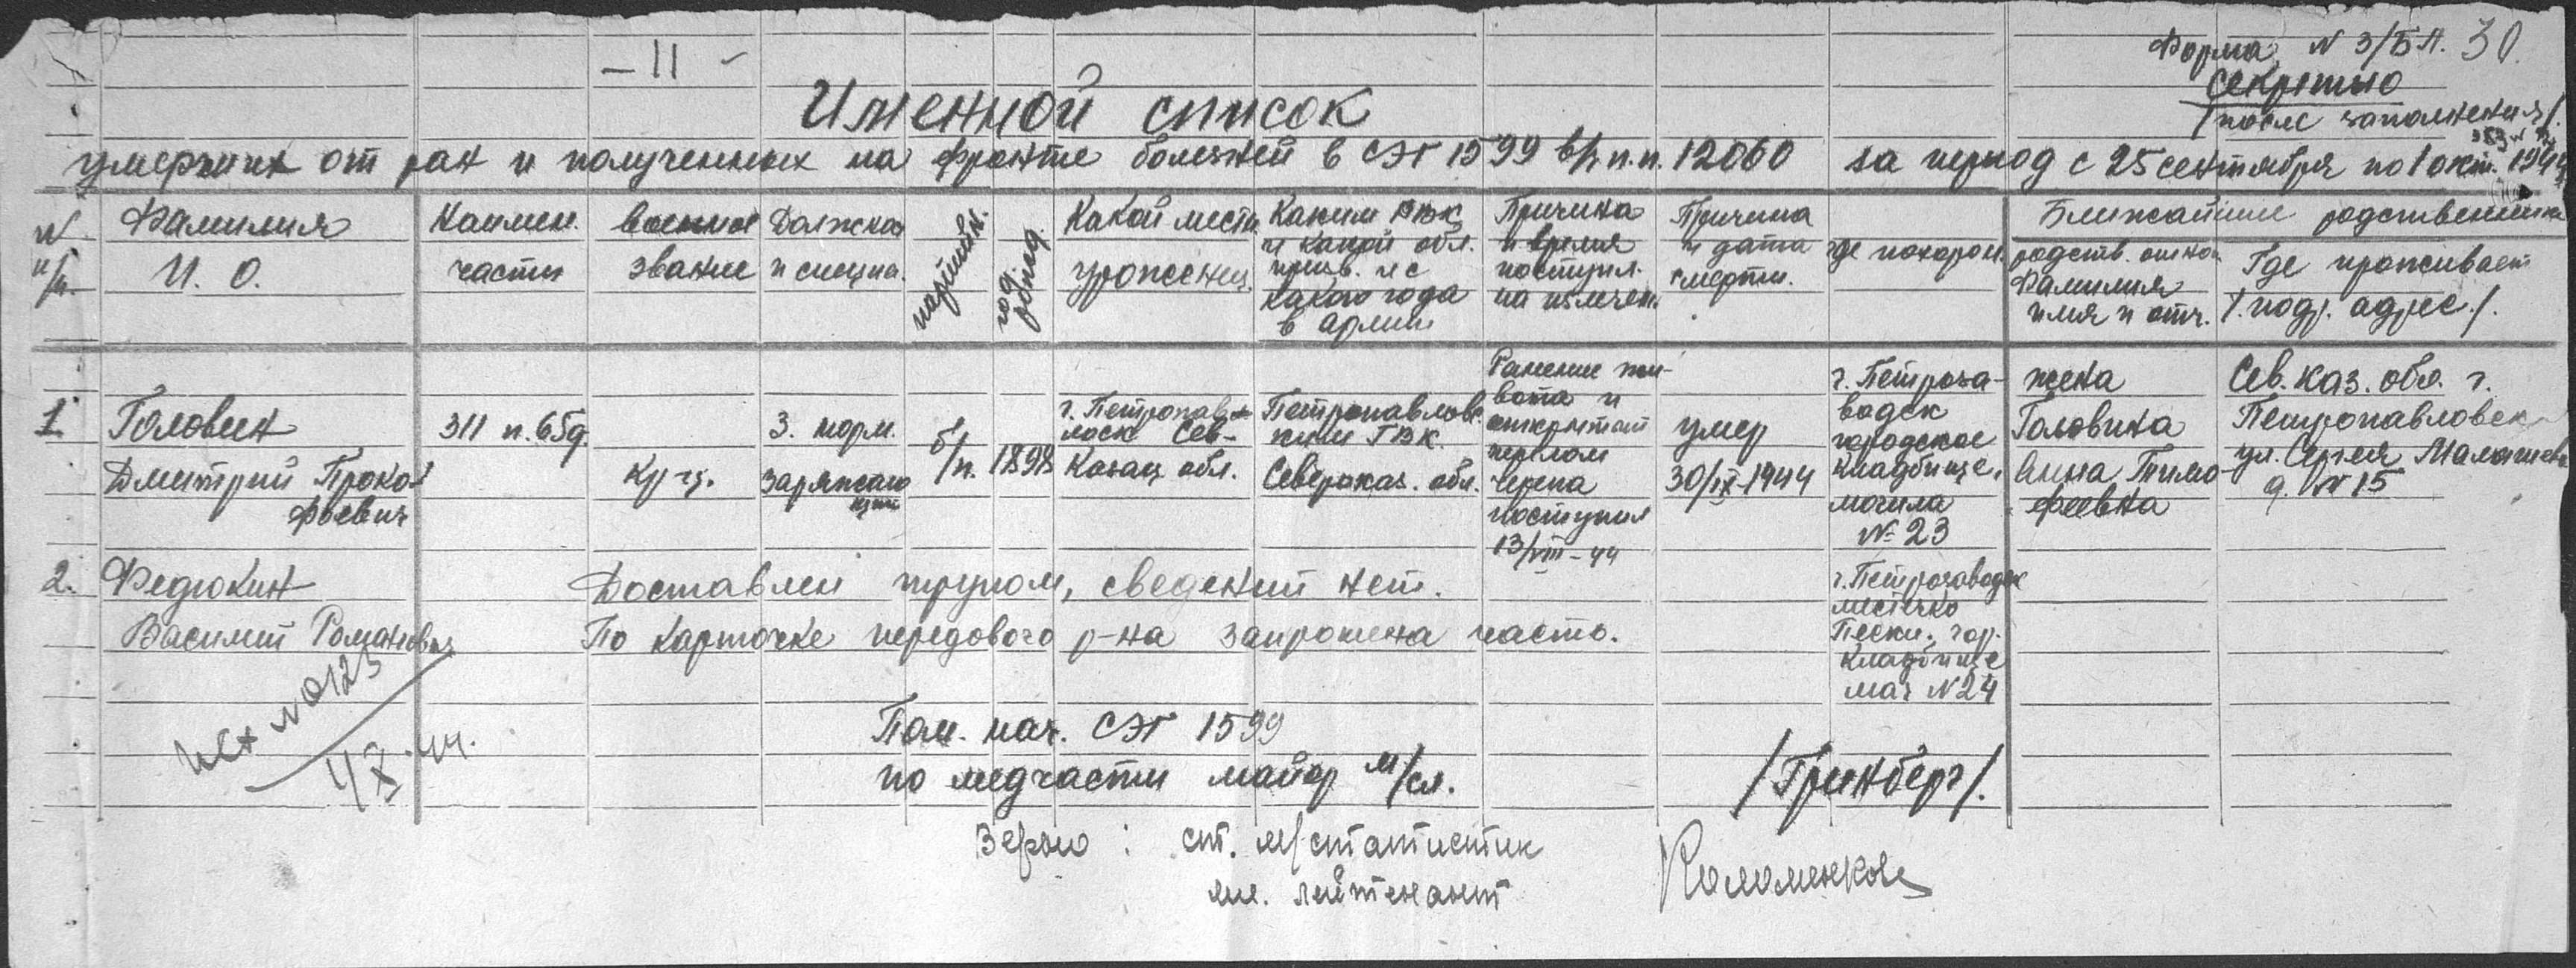 – 11 –
Форма N 3/БП. 30.
Секретно
/после заполнения/.
Именной список
умерших от ран и полученных на фронте болезней в СЭГ 1599 в/ч п.п. 12060 за период с 25 сентября по 1 окт. 1944
N п/п.
Фамилия И. О.
Наимен. части
военное звание
Должно и специа.
партийн.
год рожд.
Какой местн. уроженец.
Каким РВК и какой обл. призв. и с какого года в армии
Причина и время поступл. на излечен.
Причина и дата смерти.
где похорон.
Ближайшие родственники
родств. отнош. Фамилия имя и отч.
Где проживает /. подр. адрес /.
1
Головин
Дмитрий Проко
фьевич
311 п. 65д.
кр-ц.
З. норм.
заряжаю
щий
б/п.
1898
г. Петропав-
ловск Сев-
Казах обл.
Петропавловс.
ким ГВК.
Североказ. обл.
Ранение жи-
вота и
открытый
перелом
черепа
поступил
13/VIII-44
умер
30/IX-1944
г. Петроза-
водск
городское
кладбище.
могила
№ 23
жена
Головина
Анна Тимо
феевна
Сев. каз. обл. г.
Петропавловск
ул. Сергея Малышева
д. № 15
2.
Федюкин
Василий Романович
Доставлен трупом, сведений нет.
По карточке передового р-на запрошена часть.
г. Петрозаводск
местечко
Пески. гор.
кладбище
мог N 24
исх №0125
4/X.44.
Пом. нач. СЭГ 1599
по медчасти майор м/сл.
/Гринберг/.
Верно: ст. м/статистик
мл. лейтенант